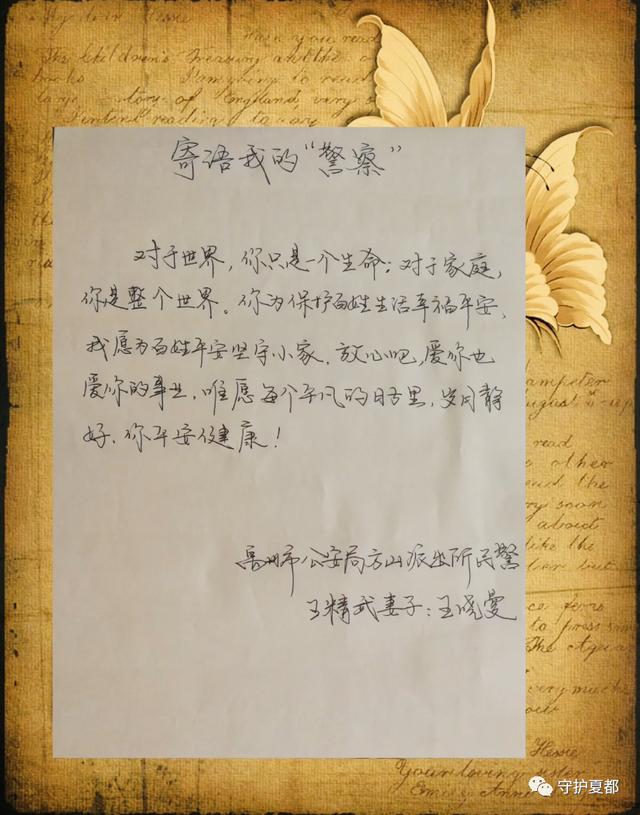 寄语我的“警察”
对于世界，你只是一个生命；对于家庭，
你是整个世界。你为保护百姓生活幸福平安，
我愿为百姓平安坚守小家。放心吧，爱你也
爱你的事业，唯愿每个平凡的日子里，岁月静
好、你平安健康！
禹州市公安局方山派出所民警
王精武妻子：王晓曼
守护夏都
you read
The Children's Treasury and the
books
large story of England, very
read
other
very soon
about
like the
Hessie
Your loving